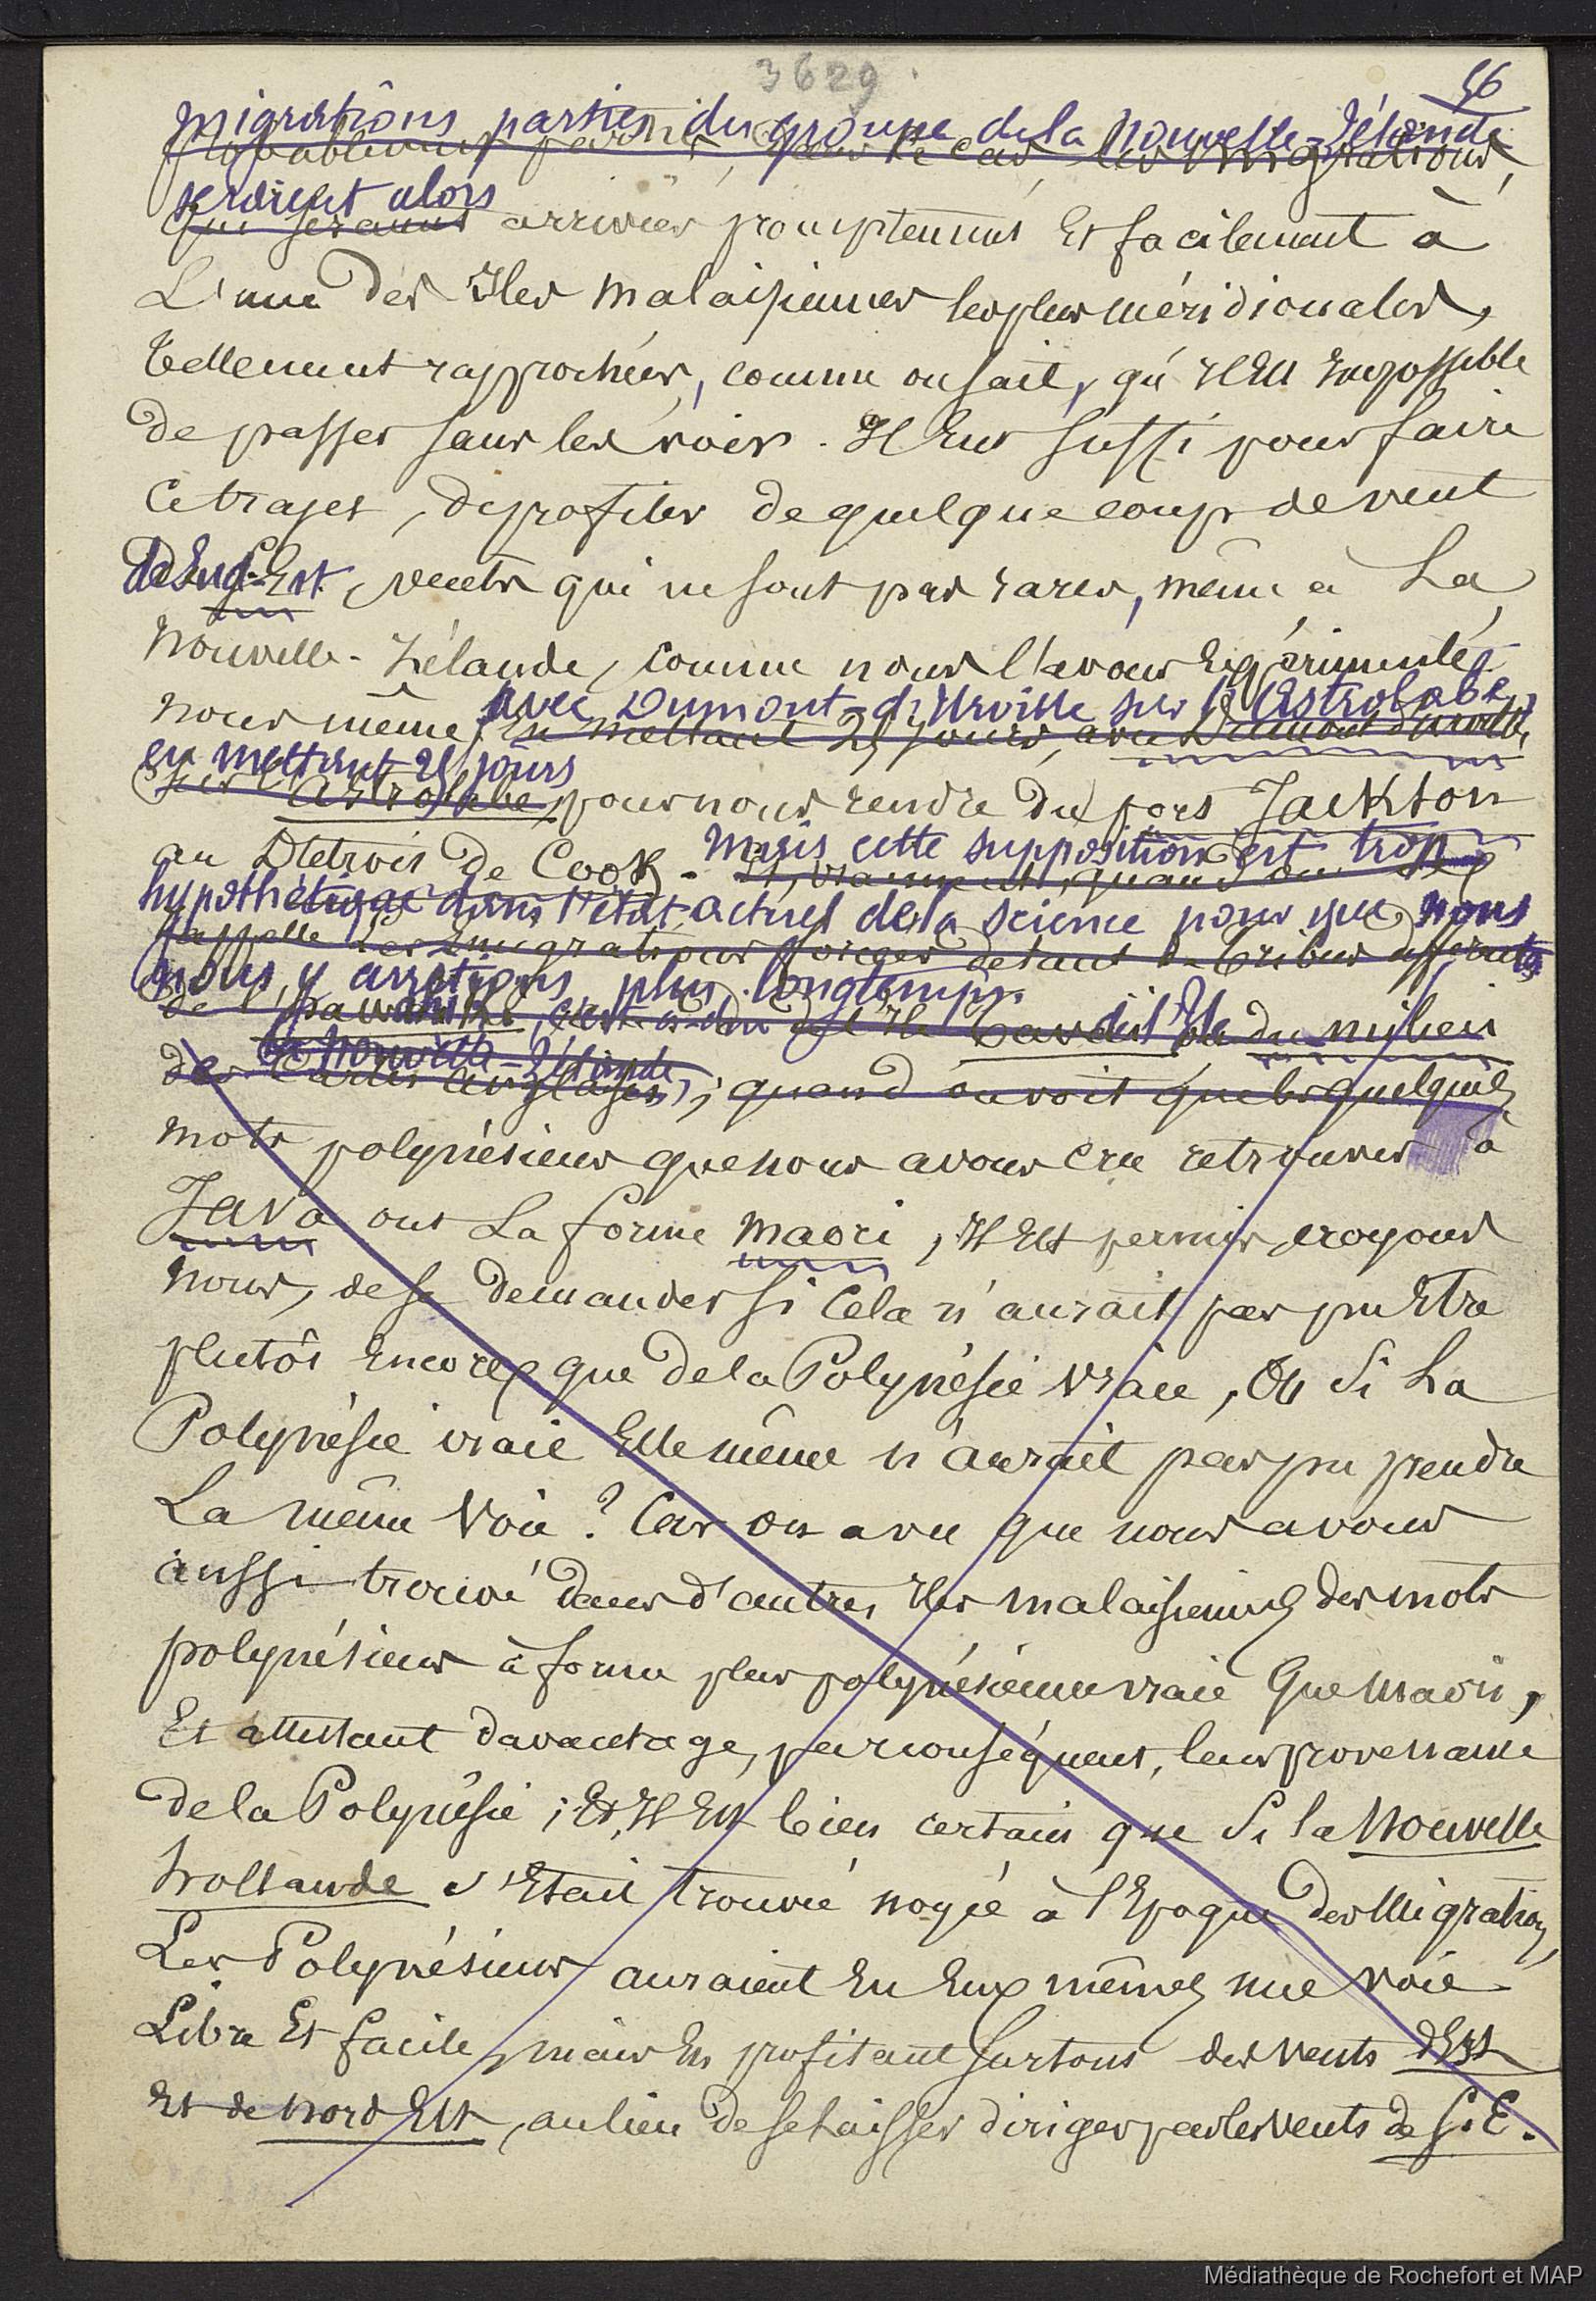 3629
56
migrations parties du groupe de la Nouvelle-Zélande
probablement
seraient alors
qui seraient arrivées promptement et facilement à
L'une des Iles malaisiennes les plus méridionales,
tellement rapprochées, comme on sait, qu'il est impossible
de passer sans les voir. Il eut suffi pour faire
ce trajet, de profiter de quelque coup de vent
de Sud-Est, vents qui ne sont pas rares, même à La
Nouvelle-Zélande, comme nous l'avons expérimenté
avec Dumont-d'Urville sur l'Astrolabe,
nous même, en mettant 25 jours, avec Dumont d'Urville,
en mettant 25 jours
sur l'Astrolabe, pour nous rendre du port Jackson
mais cette supposition est trop
au Détroit de Cook. Et, vraiment, quand on se
hypothétique dans l'état actuel de la science pour que nous
rappelle les émigrations forcées de tant de tribus différentes
nous y arrêtions plus longtemps.
de l', c'est-à-dire de l'Ile du milieu
la Nouvelle-Zélande
des cartes anglaises, ; quand on voit que les quelques
mots polynésiens que nous avons cru retrouver à
Java ont La forme maori, Il est permis, croyons
nous, de se demander si cela n'aurait pas pu Etre
plutôt encore que de la Polynésie vraie, Ou Si La
Polynésie vraie Elle même n'aurait pas pu prendre
La même Voie ? Car on a vu que nous avons
aussi trouvé dans d'autres Iles malaisiennes des mots
polynésiens à forme plus polynésienne vraie que maori,
Et attestant davantage, par conséquent, leur provenance
de la Polynésie ; Et, Il Est bien certain que Si la Nouvelle
hollande s'Etait trouvée noyée à l'Epoque des Migrations,
Les Polynésiens auraient Eu Eux mêmes une voie
Libre Et facile, mais En profitant surtout des vents d'Est
Et de Nord Est, au lieu de se laisser diriger par les vents de S. E.
Médiathèque de Rochefort et MAP